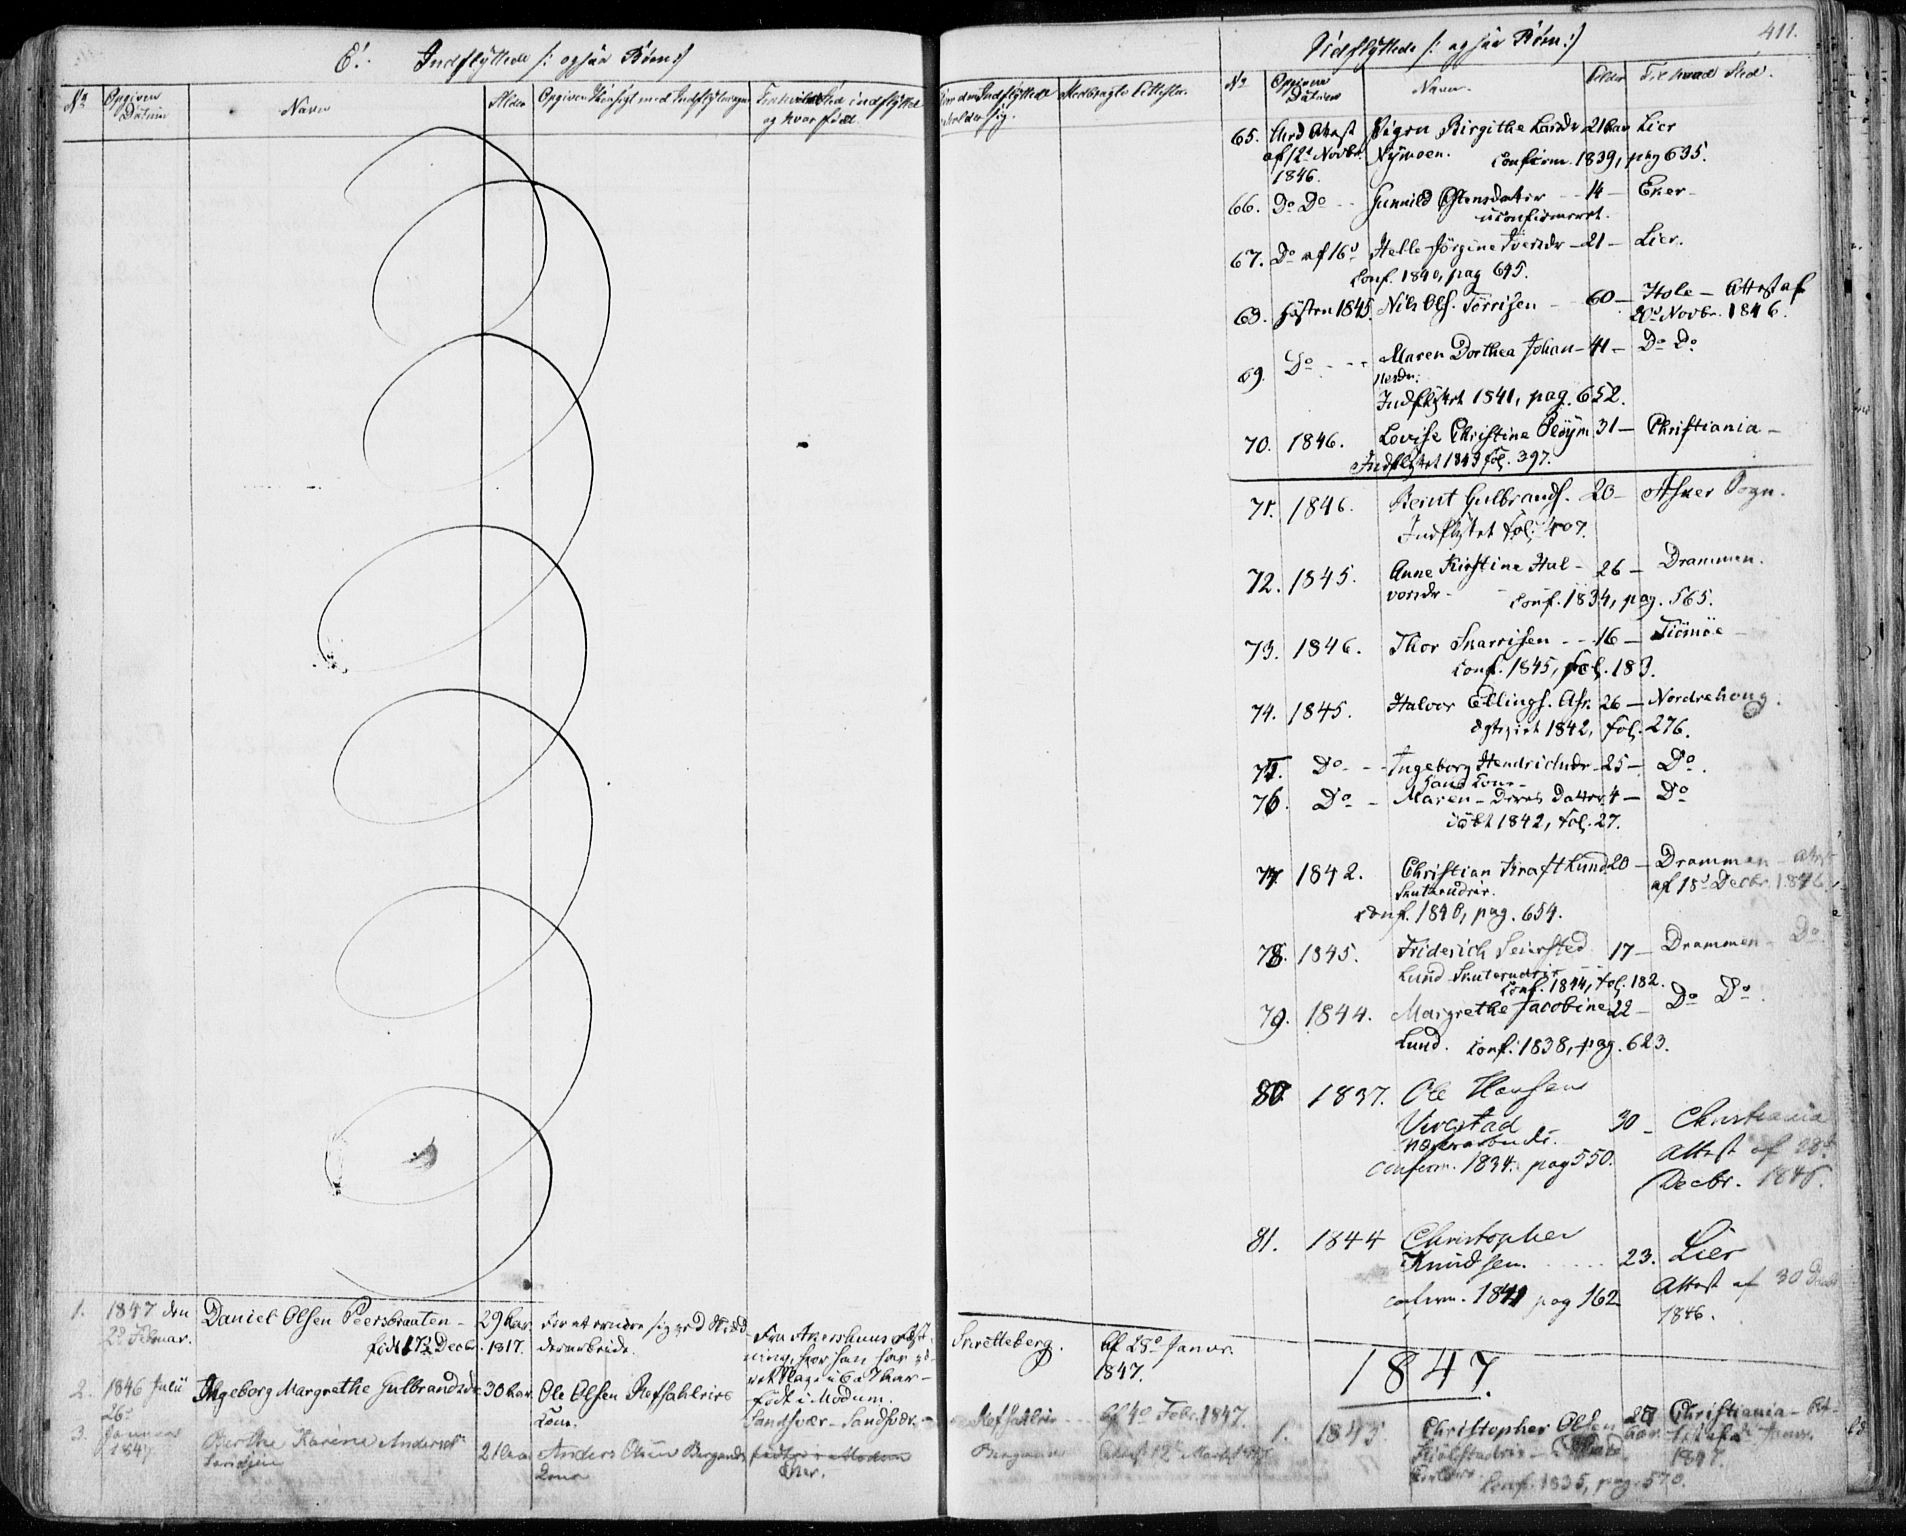 E. Indflyttede /: ogsaa Tiden :/
No
Opgiven Datum
Navn
Alder
Opgiven Hensigt med Indflytningen
Fra hvilket Sted indflyttet og hvor født.
Hvor den Indflyttede opholder sig.
Medbragte Attester.
1. 1847 den 2den Februar. Daniel Olsen Peersbraaten - 29 Aar
født 1817.
For at ernære sig ved Dagarbeide.
født i Modum.
Skretteberg.
Af 28de Januar 1847.
2. 1846 Julii 26de Ingeborg Margrethe Gulbrandsdr 30 Aar Ole Olsen Refsahleies
Kone.
Sandsvær - Sandsvær.
Refsahleie - - - Af 4de Febr. 1847.
3. Januar 1847 Berthe Karine Andersdr
21 Aar Anders Olsen
Kone
Eker.
Attest 12te Marts 1847
Udflyttede /: ogsaa Tiden :/
411.
No
Opgiven Datum
Navn.
Alder
Til hvad Sted.
65. Med Attest Sigrn Birgithe Larsdr 21 Aar Lier
af 12te Novbr. Nymoen. Confirm. 1839, pag 635.
1846.
66. Do Do - - Gunnild Østensdatter - - 14 - Eker -
uconfirmeret.
67. Do af 16de Helle Jörgine Iversdr - 21 - Lier.
Conf. 1840, pag 645.
68. Høsten 1845. Nils Ols. Torrisen - 60 - Hole - Attest af
20de Novbr. 1846.
69. Do - - - Maren Dorthea Johan- 41 - Do Do
nesdr.
Indflyttet 1841, pag. 652.
70. 1846. Lovise Christine Pløym 31 - Christiania -
Indflyttet 1843 fol. 397.
71. 1846. Bernt Gulbrands. 20 - Asker Sogn.
Indflyttet fol. 407.
72. 1845. Anne Kirstine Hal- 26 - Drammen.
vorsdr - - Conf. 1834, pag. 565.
73. 1846. Thor Snarrisen - - 16 - Tiömöe -
Conf. 1845, fol. 183.
74. 1845. Halvor Ellings. Asr. 26 - Nordrehoug.
Egteviet 1842, fol. 276.
75. Do - - Ingeborg Hendrichsdr - 25 - Do.
hans Kone -
76. Do - Maren - Deres Datter. 4 - Do
Döbt 1842, fol. 27.
77. 1842. Christian Kraft Lund 20 - Drammen - Attest
Snuterudeie. af 18de Decbr. 1846.
Conf. 1840, pag. 654.
78. 1845. Friderich Seiersted 17 - Drammen - Do.
Lund Snuterudeie
Conf. 1844, fol. 182.
79. 1844. Margrethe Jacobine 22 - Do Do.
Lund. Conf. 1838, pag. 623.
80. 1837. Ole Hansen
Vivestad 30 - Christiania
Confirm. 1834. pag 550. Attest af 28de
Decbr. 1846.
81. 1844 Christopher
Knudsen. . . . . . 23. Lier
Confirm. 1841 pag 162 Attest af 30 Decbr
1846.
1847.
1. 1845. Christopher Olsen 27 Christiania - At-
Aar.
1847.
Conf. 1835, pag. 570.